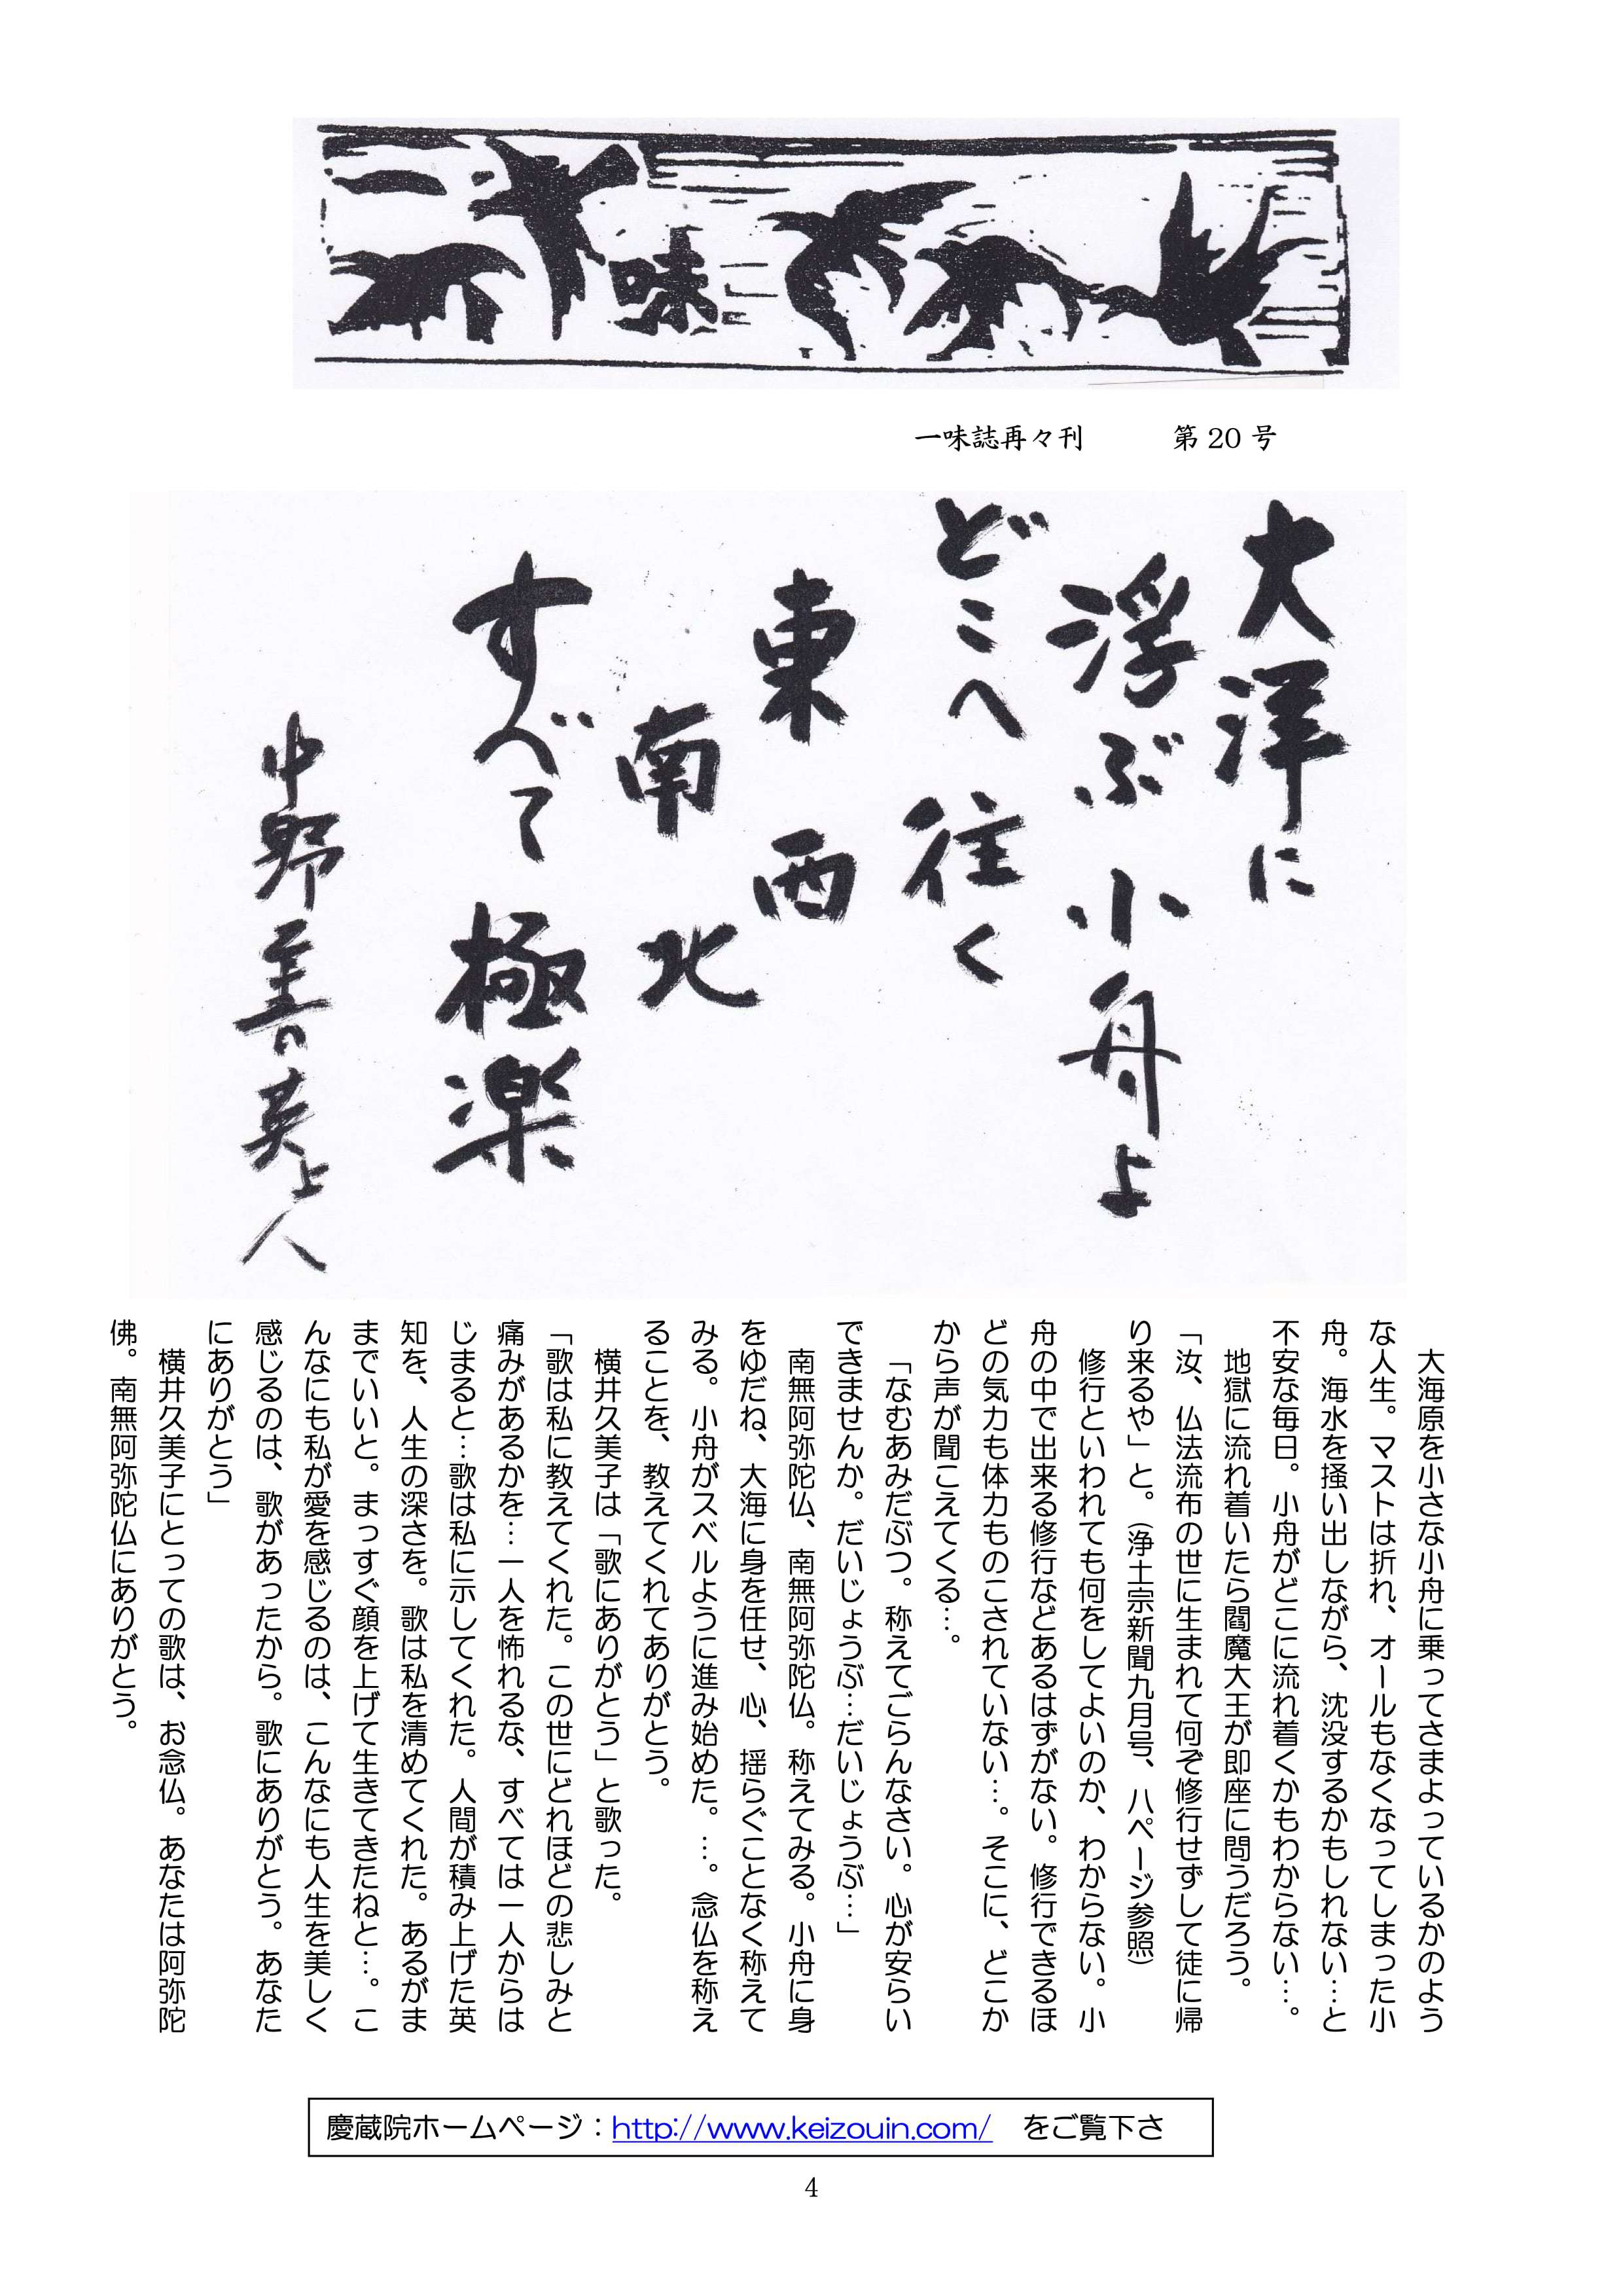 一味
一味誌再々刊 第20号
大洋に
浮ぶ小舟よ
どこへ往く
東西
南北
すべて極楽
中野善英上人
大海原を小さな小舟に乗ってさまよっているかのよう
な人生。マストは折れ、オールもなくなってしまった小
舟。海水を掻い出しながら、沈没するかもしれない…と
不安な毎日。小舟がどこに流れ着くかもわからない…。
地獄に流れ着いたら閻魔大王が即座に問うだろう。
「汝、仏法流布の世に生まれて何ぞ修行せずして徒に帰
り来るや」と。（浄土宗新聞九月号、八ページ参照）
修行といわれても何をしてよいのか、わからない。小
舟の中で出来る修行などあるはずがない。修行できるほ
どの気力も体力ものこされていない…。そこに、どこか
から声が聞こえてくる…。
「なむあみだぶつ。称えてごらんなさい。心が安らい
できませんか。だいじょうぶ…だいじょうぶ…」
南無阿弥陀仏、南無阿弥陀仏。称えてみる。小舟に身
をゆだね、大海に身を任せ、心、揺らぐことなく称えて
みる。小舟がスベルように進み始めた。…。念仏を称え
ることを、教えてくれてありがとう。
横井久美子は「歌にありがとう」と歌った。
「歌は私に教えてくれた。この世にどれほどの悲しみと
痛みがあるかを…一人を怖れるな、すべては一人からは
じまると…歌は私に示してくれた。人間が積み上げた英
知を、人生の深さを。歌は私を清めてくれた。あるがま
までいいと。まっすぐ顔を上げて生きてきたねと…。こ
んなにも私が愛を感じるのは、こんなにも人生を美しく
感じるのは、歌があったから。歌にありがとう。あなた
にありがとう」
横井久美子にとっての歌は、お念仏。あなたは阿弥陀
佛。南無阿弥陀仏にありがとう。
慶蔵院ホームページ：http://www.keizouin.com/ をご覧下さ
4